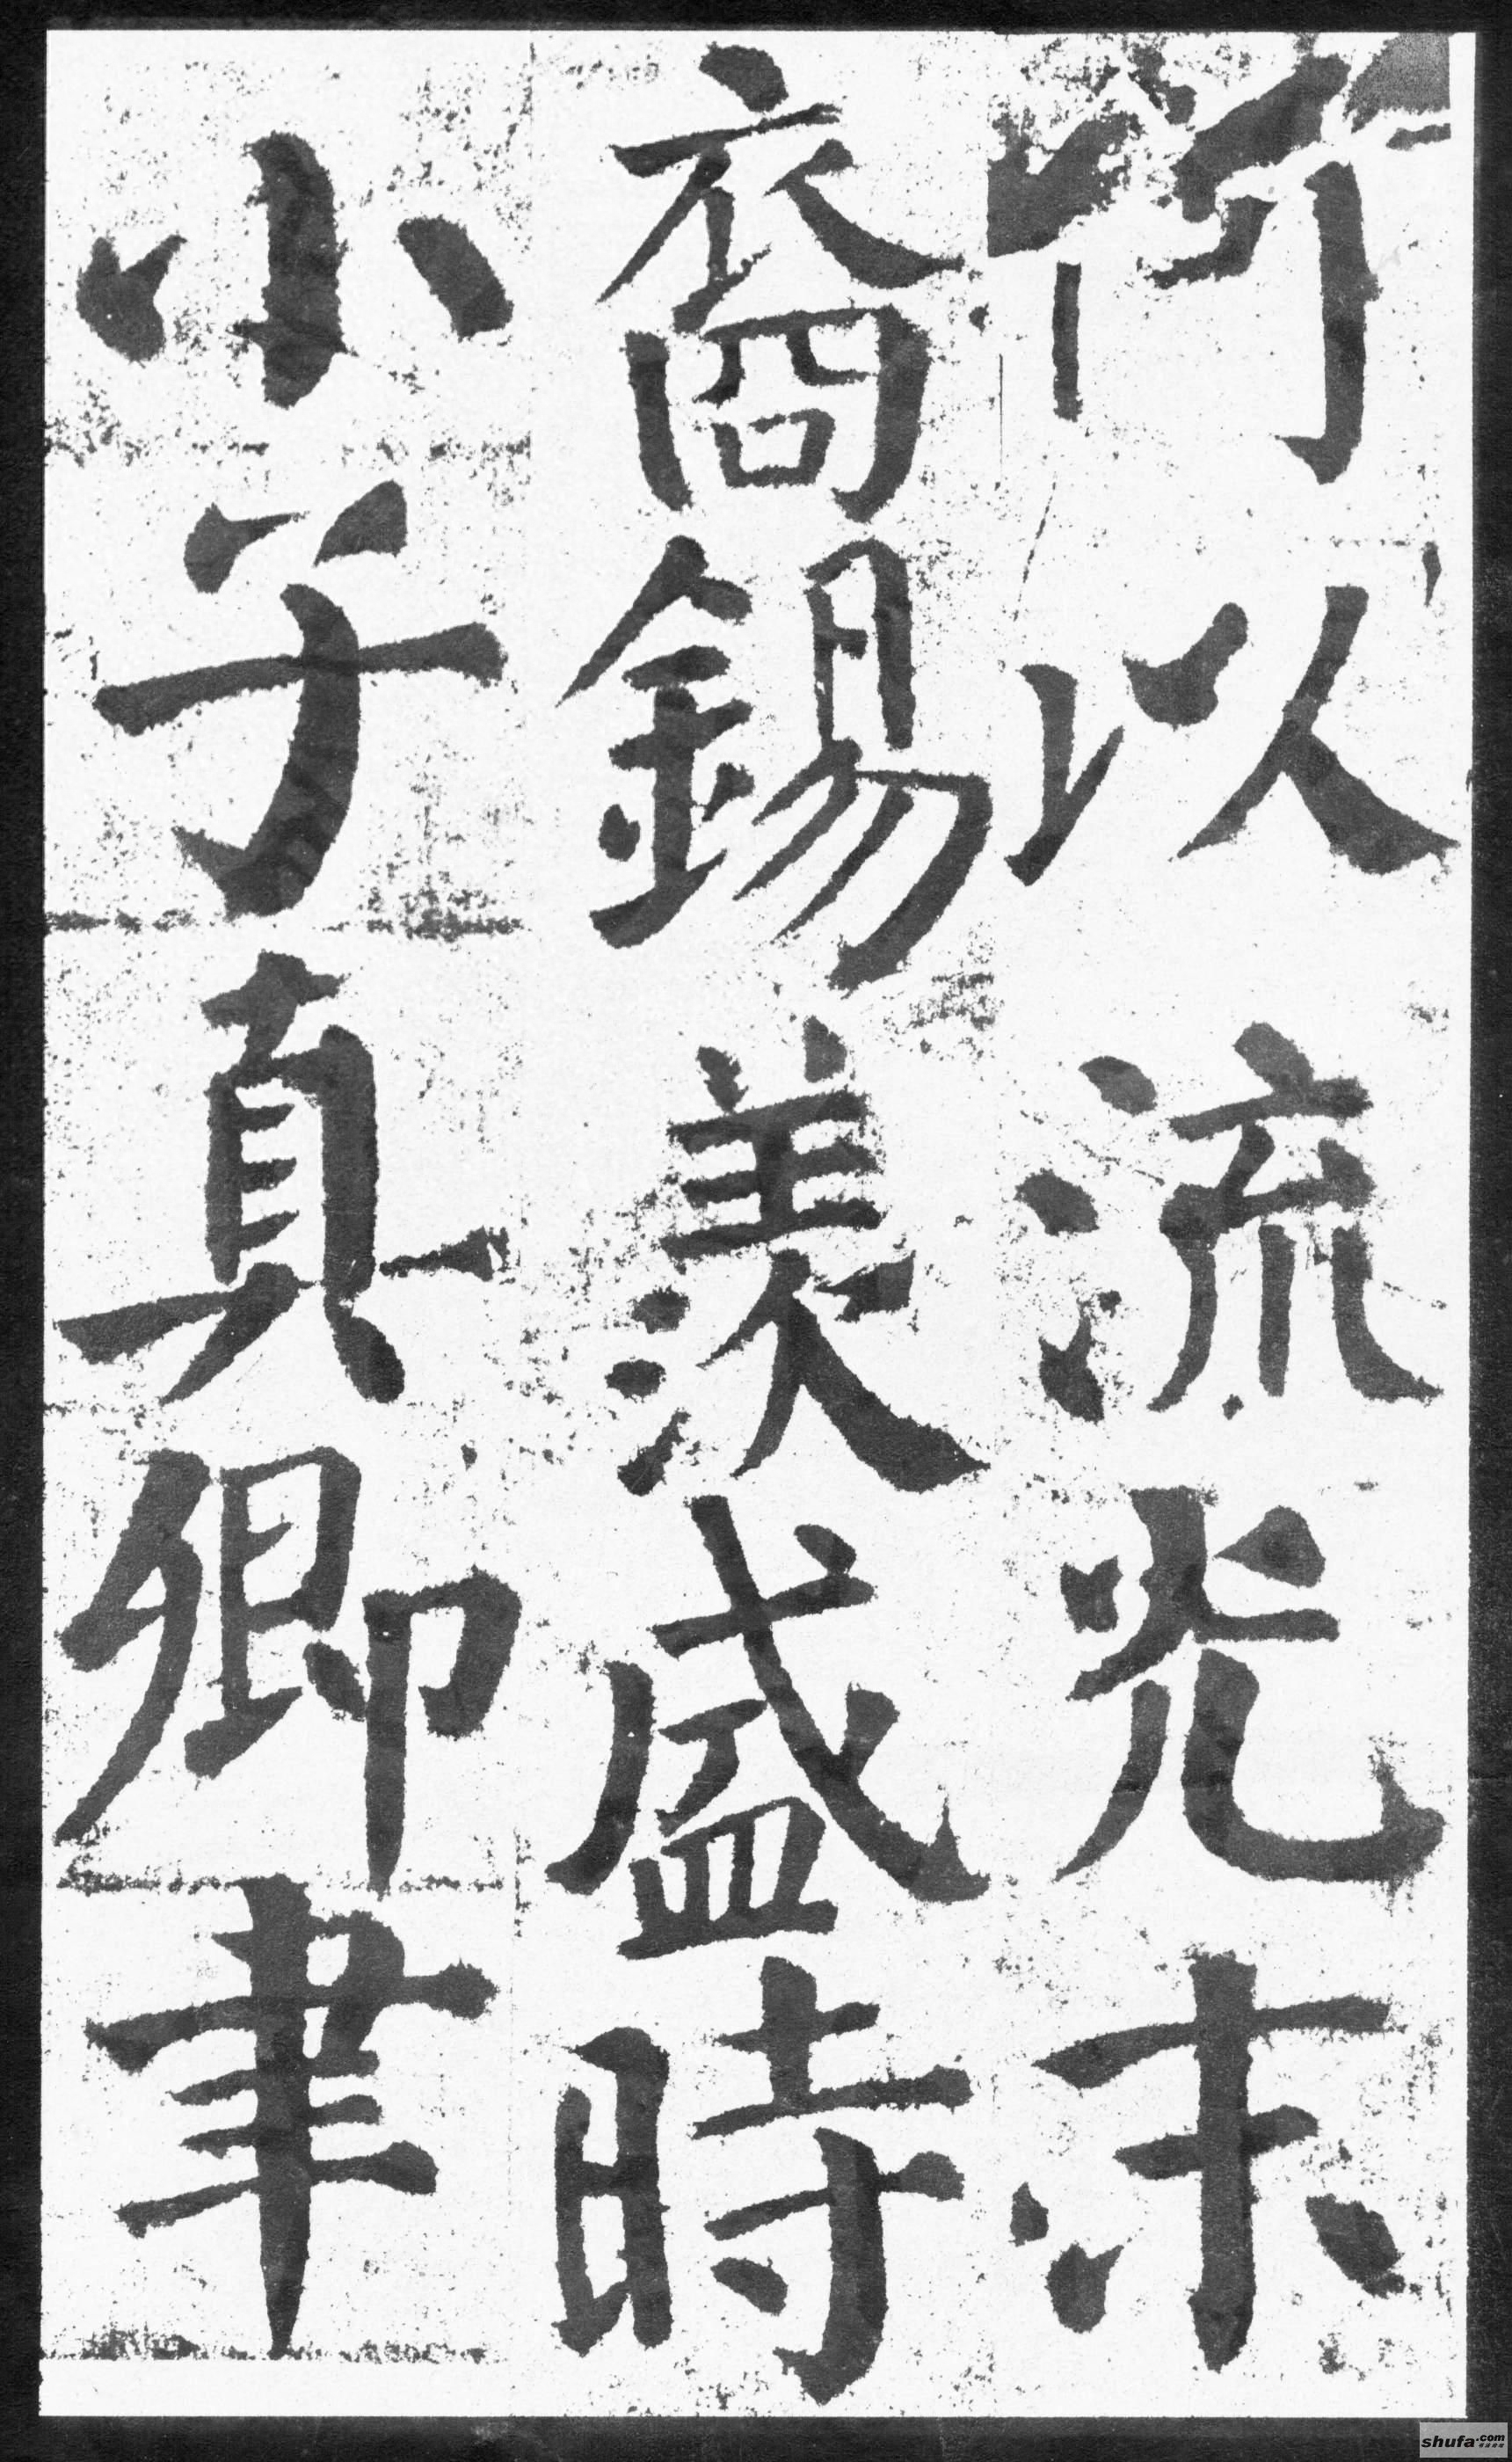 所以流光末
裔錫羨盛時
小子真卿筆
shufa.com